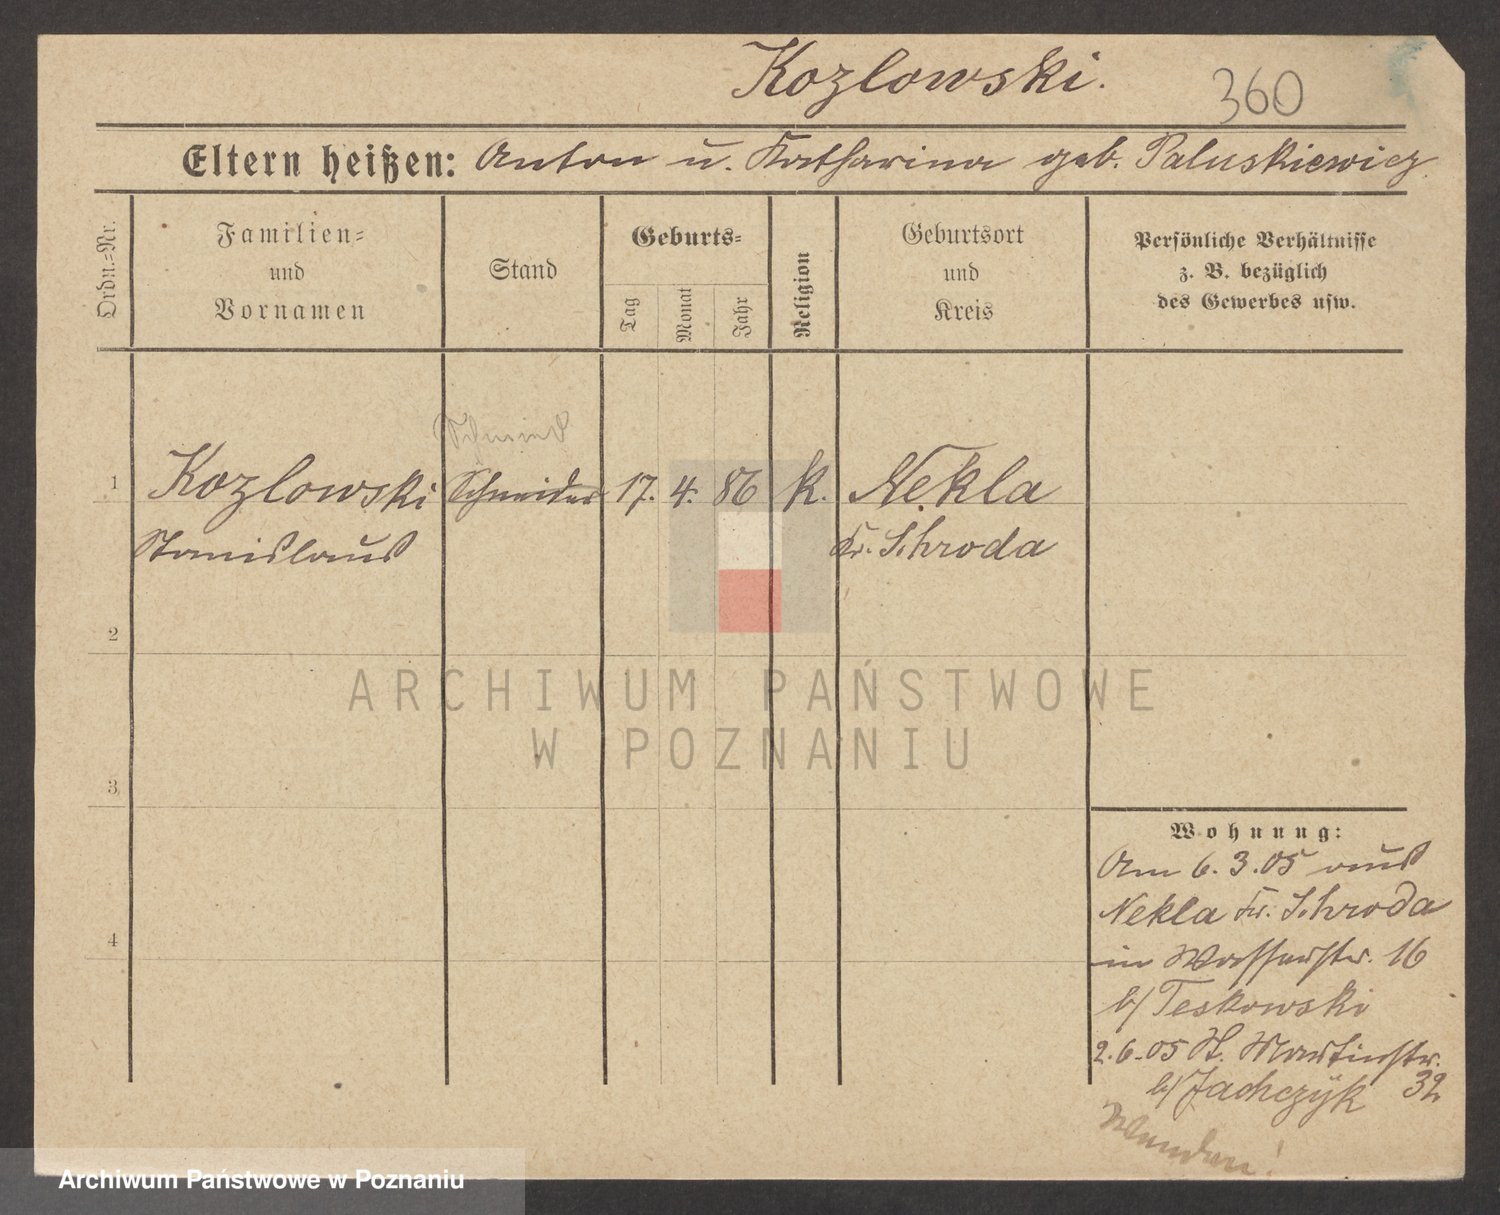 Kozlowski.
360
Eltern heißen: Anton u. Katharina geb. Paluskiewicz.
Ordn.=Nr.
Familien=
und
Vornamen
Stand
Geburts=
Tag
Monat
Jahr
Religion
Geburtsort
und
Kreis
Persönliche Verhältnisse
z. B. bezüglich
des Gewerbes usw.
Schmied
1 Kozlowski Schneider 17. 4. 86 k. Nekla
Stanislaus Kr. Schroda
2
ARCHIWUM PAŃSTWOWE
W POZNANIU
3
Wohnung:
Am 6.3.05 aus
Nekla Kr. Schroda
4
in Wasserstr. 16
b/ Teskowski
2.6.05 St. Martinstr.
b/ Jachczyk 32
Archiwum Państwowe w Poznaniu